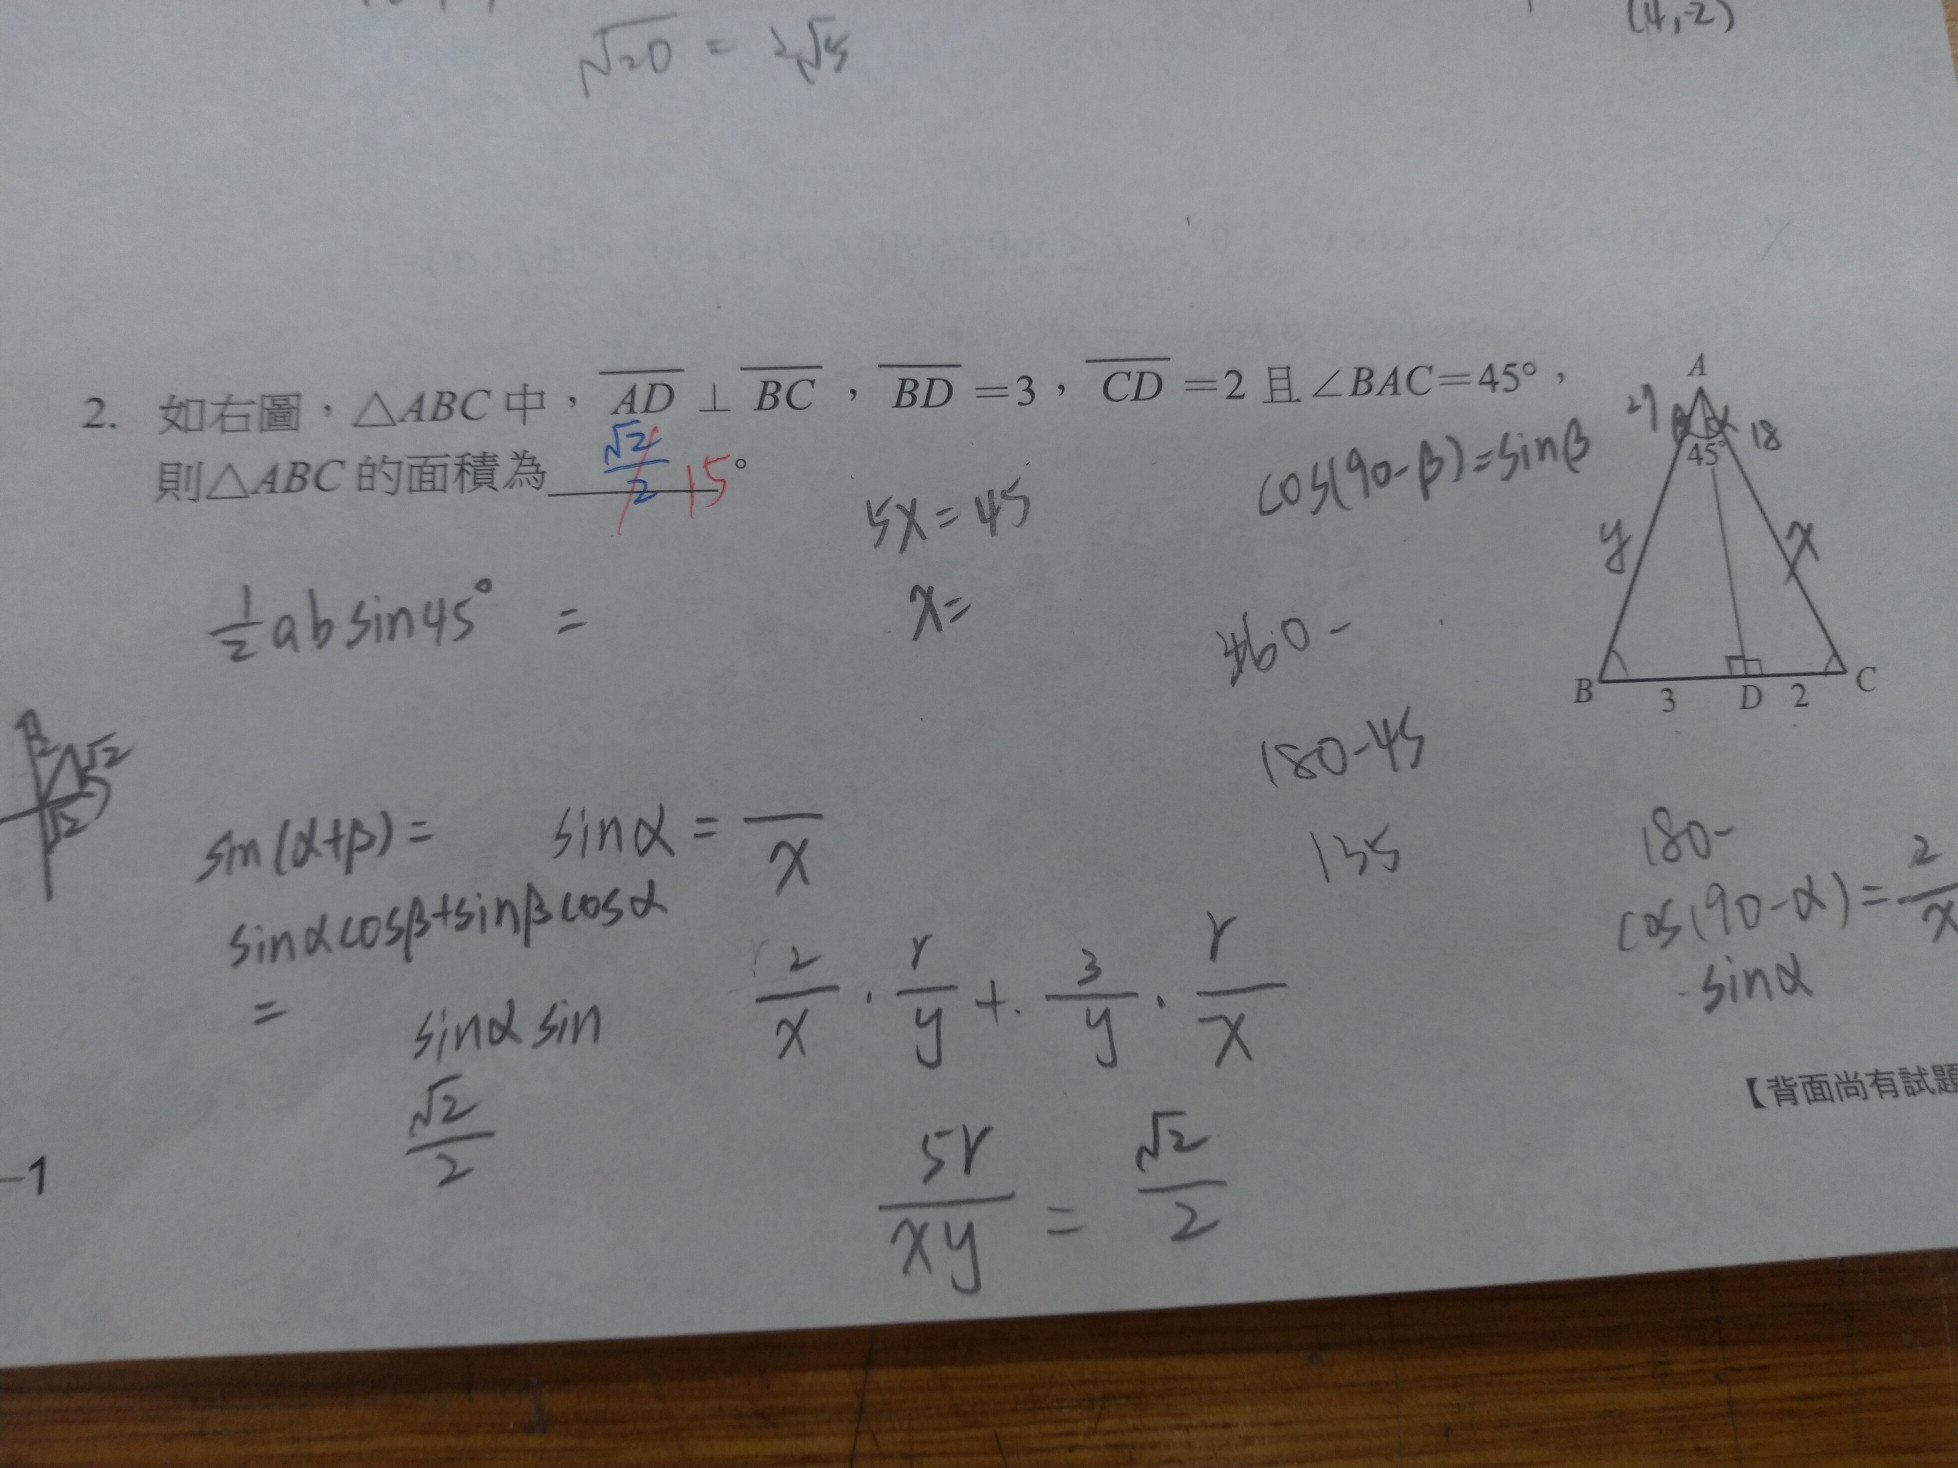 √20 = 2√5
(4,-2)
2. 如右圖，△ABC 中，AD ⊥ BC，BD =3，CD =2 且 ∠BAC=45°，
則△ABC 的面積為 √2/2 15。
A
27
18
45°
y
x
B 3 D 2 C
5x=45
x=
cos(90-β)=sinβ
1/2 ab sin45° =
360-
180-45
135
√2
√2
sin(α+β)= sinα = /x
sinαcosβ+sinβcosα
=
sinα sin
√2/2
2/x · r/y + 3/y · r/x
5r/xy = √2/2
180-
cos(90-α)=2/x
sinα
【背面尚有試題
-1